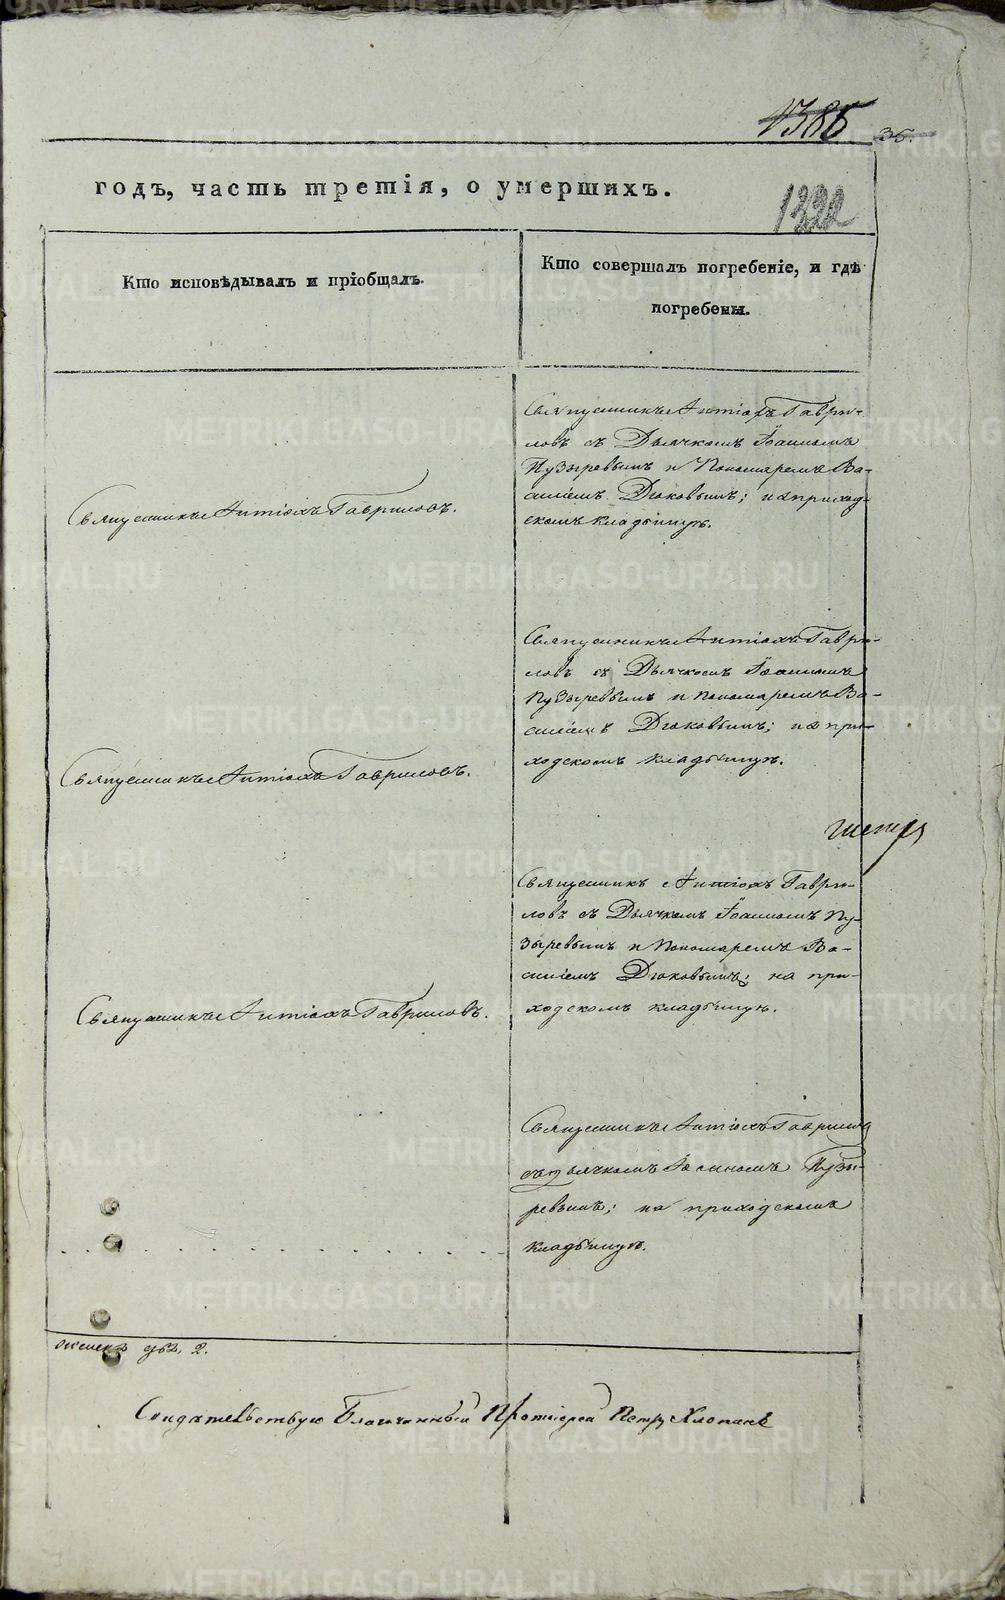 1386
36.
годъ, часть третія, о умершихъ.
1322
Кто исповѣдывалъ и пріобщалъ.
Кто совершалъ погребеніе, и гдѣ
погребены.
Священникъ Антіохъ Гавриловъ.
Священникъ Антіохъ Гаври-
ловъ съ Дьячкомъ Іоанномъ
Пузыревымъ и Пономаремъ Ва-
силіемъ Дюковымъ; на приход-
скомъ кладбищѣ.
Священникъ Антіохъ Гавриловъ.
Священникъ Антіохъ Гаври-
ловъ съ Дьячкомъ Іоанномъ
Пузыревымъ и Пономаремъ Ва-
силіемъ Дюковымъ; на при-
ходскомъ кладбищѣ.
Священникъ Антіохъ Гавриловъ.
Священникъ Антіохъ Гаври-
ловъ съ Дьячкомъ Іоанномъ Пу-
зыревымъ и Пономаремъ Ва-
силіемъ Дюковымъ; на при-
ходскомъ кладбищѣ.
Священникъ Антіохъ Гавриловъ
съ дьячкомъ Іоанномъ Пузы-
ревымъ; на приходскомъ
кладбищѣ.
женска два, 2.
Свидѣтельствую Благочинный Протоіерей Петръ
METRIKI.GASO-URAL.RU